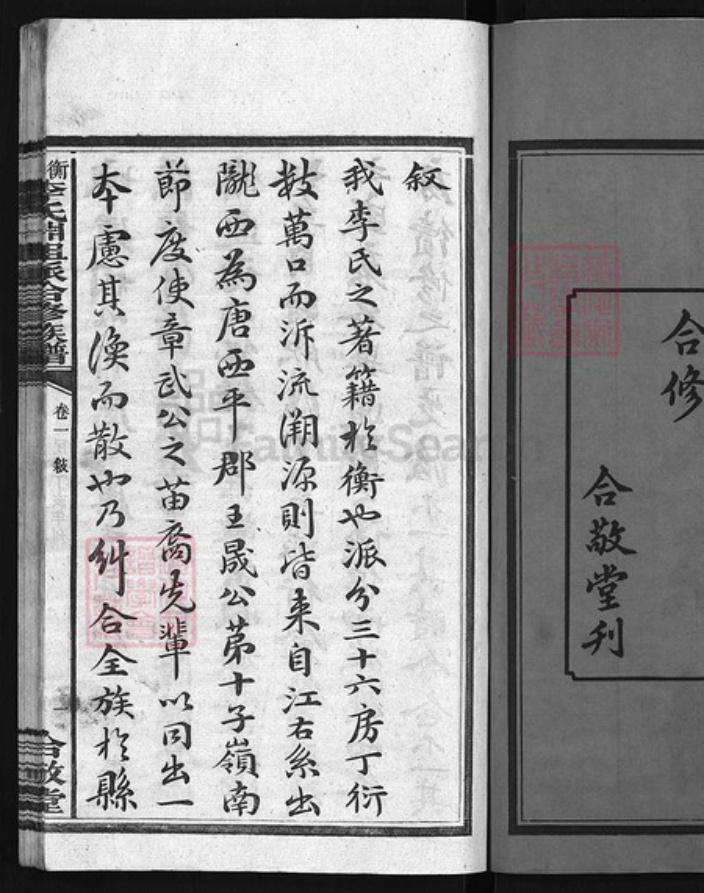 合修
合敬堂刊
叙
我李氏之著籍扵衡也派分三十六房丁衍
数萬口而泝流溯源則皆来自江右系出
隴西為唐西平郡王晟公苐十子嶺南
節度使章武公之苗裔先輩以同出一
本慮其渙而散也乃糾合全族扵縣
衡
李氏
祖派合修族譜
卷一
敘
一
合敬堂
FamilySearch